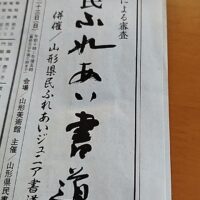 による審査
民ふれあい書道
併催 山形県民ふれあいジュニア書道
二十三日(日)
会場/山形美術館
主催/山形県民書